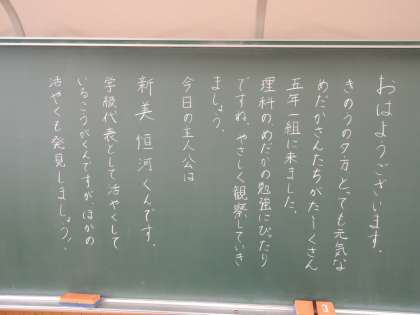 おはようございます。
きのうの夕方、とっても元気な
めだかさんたちがた〜くさん
五年一組に来ました。
理科の、めだかの勉強にぴったり
ですね。やさしく観察していき
ましょう。
今日の主人公は
新美 恒河くんです。
学級代表として活やくして
いるこうがくんですが、ほかの
活やくも発見しましょう!
3